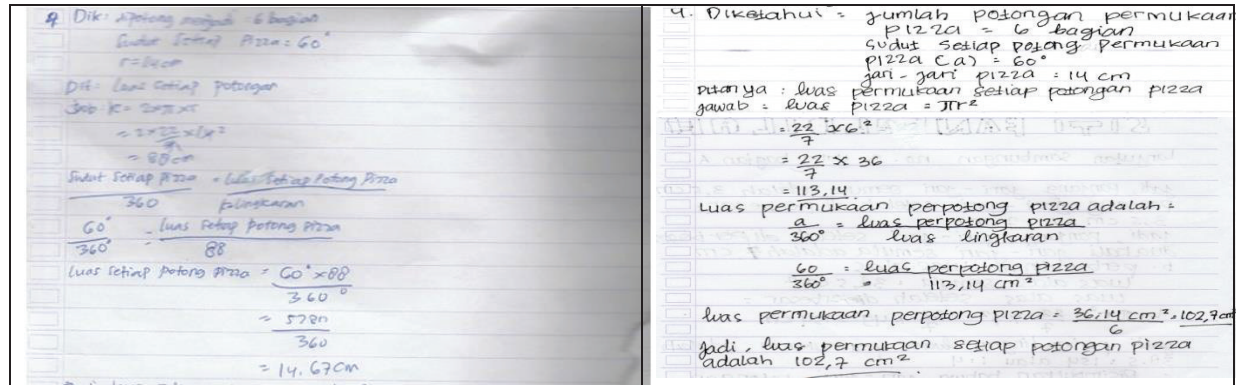 4 Dik: dipotong menjadi 6 bagian
Sudut Setiap Pizza = 60°
r = 14 cm
Dit: luas setiap potongan
Jab K = 2×π×r
= 2 × 22/7 ×
= 88 cm
Sudut Setiap Pizza / 360 = Luas Setiap Potong Pizza / k. lingkaran
60°/360° = Luas Setiap Potong Pizza / 88
Luas Setiap Potong Pizza = 60° × 88 / 360°
= / 360
= 14.67 cm
4. Diketahui = Jumlah potongan permukaan
pizza = 6 bagian
sudut setiap potong permukaan
pizza (a) = 60°
jari - jari pizza = 14 cm
Ditanya : luas permukaan setiap potongan pizza
Jawab = luas pizza = πr²
= 22/7 × 6²
= 22/7 × 36
= 113,14
Luas permukaan perpotong pizza adalah =
a/360° = luas perpotong pizza / luas lingkaran
60/360° = luas perpotong pizza / 113,14 cm²
luas permukaan perpotong pizza = 36,14 cm² / 6 = 102,7 cm
Jadi, luas permukaan setiap potongan pizza
adalah 102,7 cm²